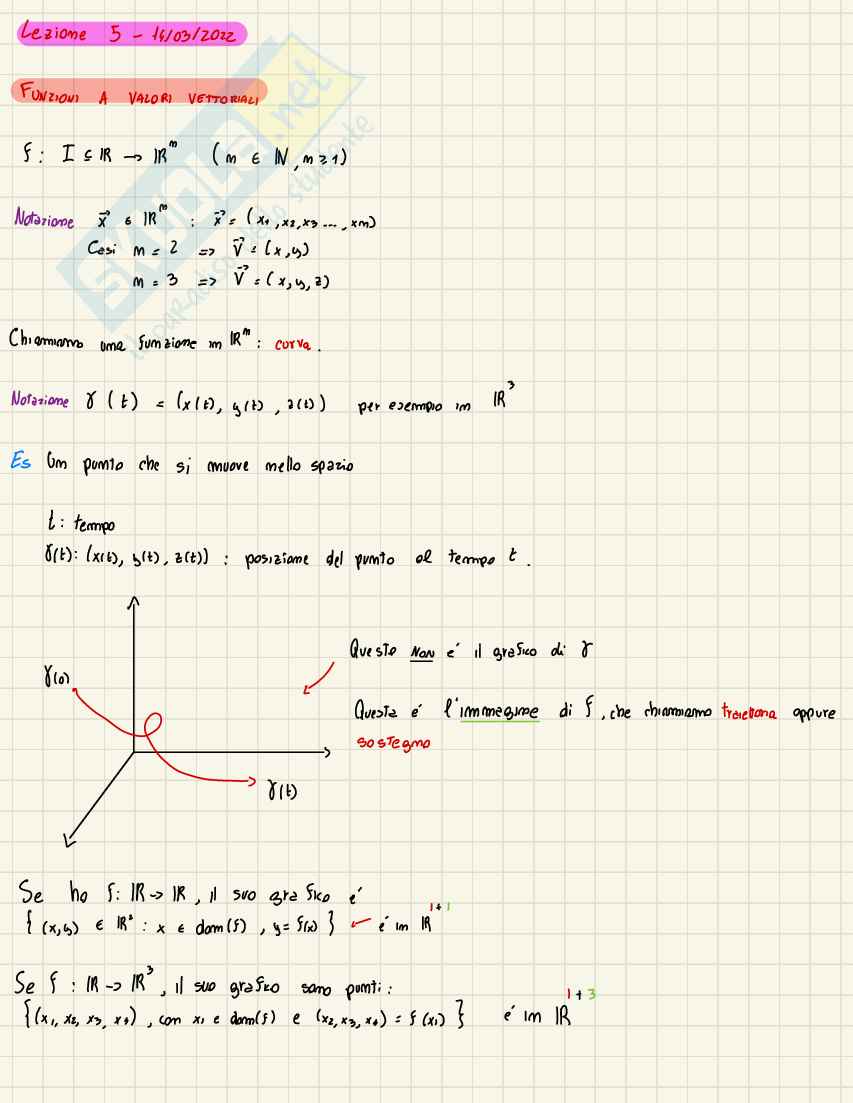 Lezione 5 - 14/03/2022
FUNZIONI A VALORI VETTORIALI
f: I ⊆ ℝ → ℝᵐ (m ∈ ℕ, m ≥ 1)
Notazione x⃗ ∈ ℝᵐ : x⃗ = (x₁, x₂, x₃ ..., xm)
Casi m = 2 => V⃗ = (x, y)
m = 3 => V⃗ = (x, y, z)
Chiamiamo una funzione in ℝᵐ: curva.
Notazione γ(t) = (x(t), y(t), z(t)) per esempio in ℝ³
Es Un punto che si muove nello spazio
t: tempo
γ(t): (x(t), y(t), z(t)) : posizione del punto al tempo t.
Questo NON è il grafico di γ
γ(0)
Questa è l'immagine di f, che chiamiamo traiettoria oppure
sostegno
γ(t)
Se ho f: ℝ → ℝ, il suo grafico è
{(x,y) ∈ ℝ² : x ∈ dom(f), y = f(x)} ← è in ℝ¹⁺¹
Se f : ℝ → ℝ³, il suo grafico sono punti:
{(x₁, x₂, x₃, x₄), con x₁ ∈ dom(f) e (x₂, x₃, x₄) = f(x₁)} è in ℝ¹⁺³
SKUOLA.net
il paradiso dello studente